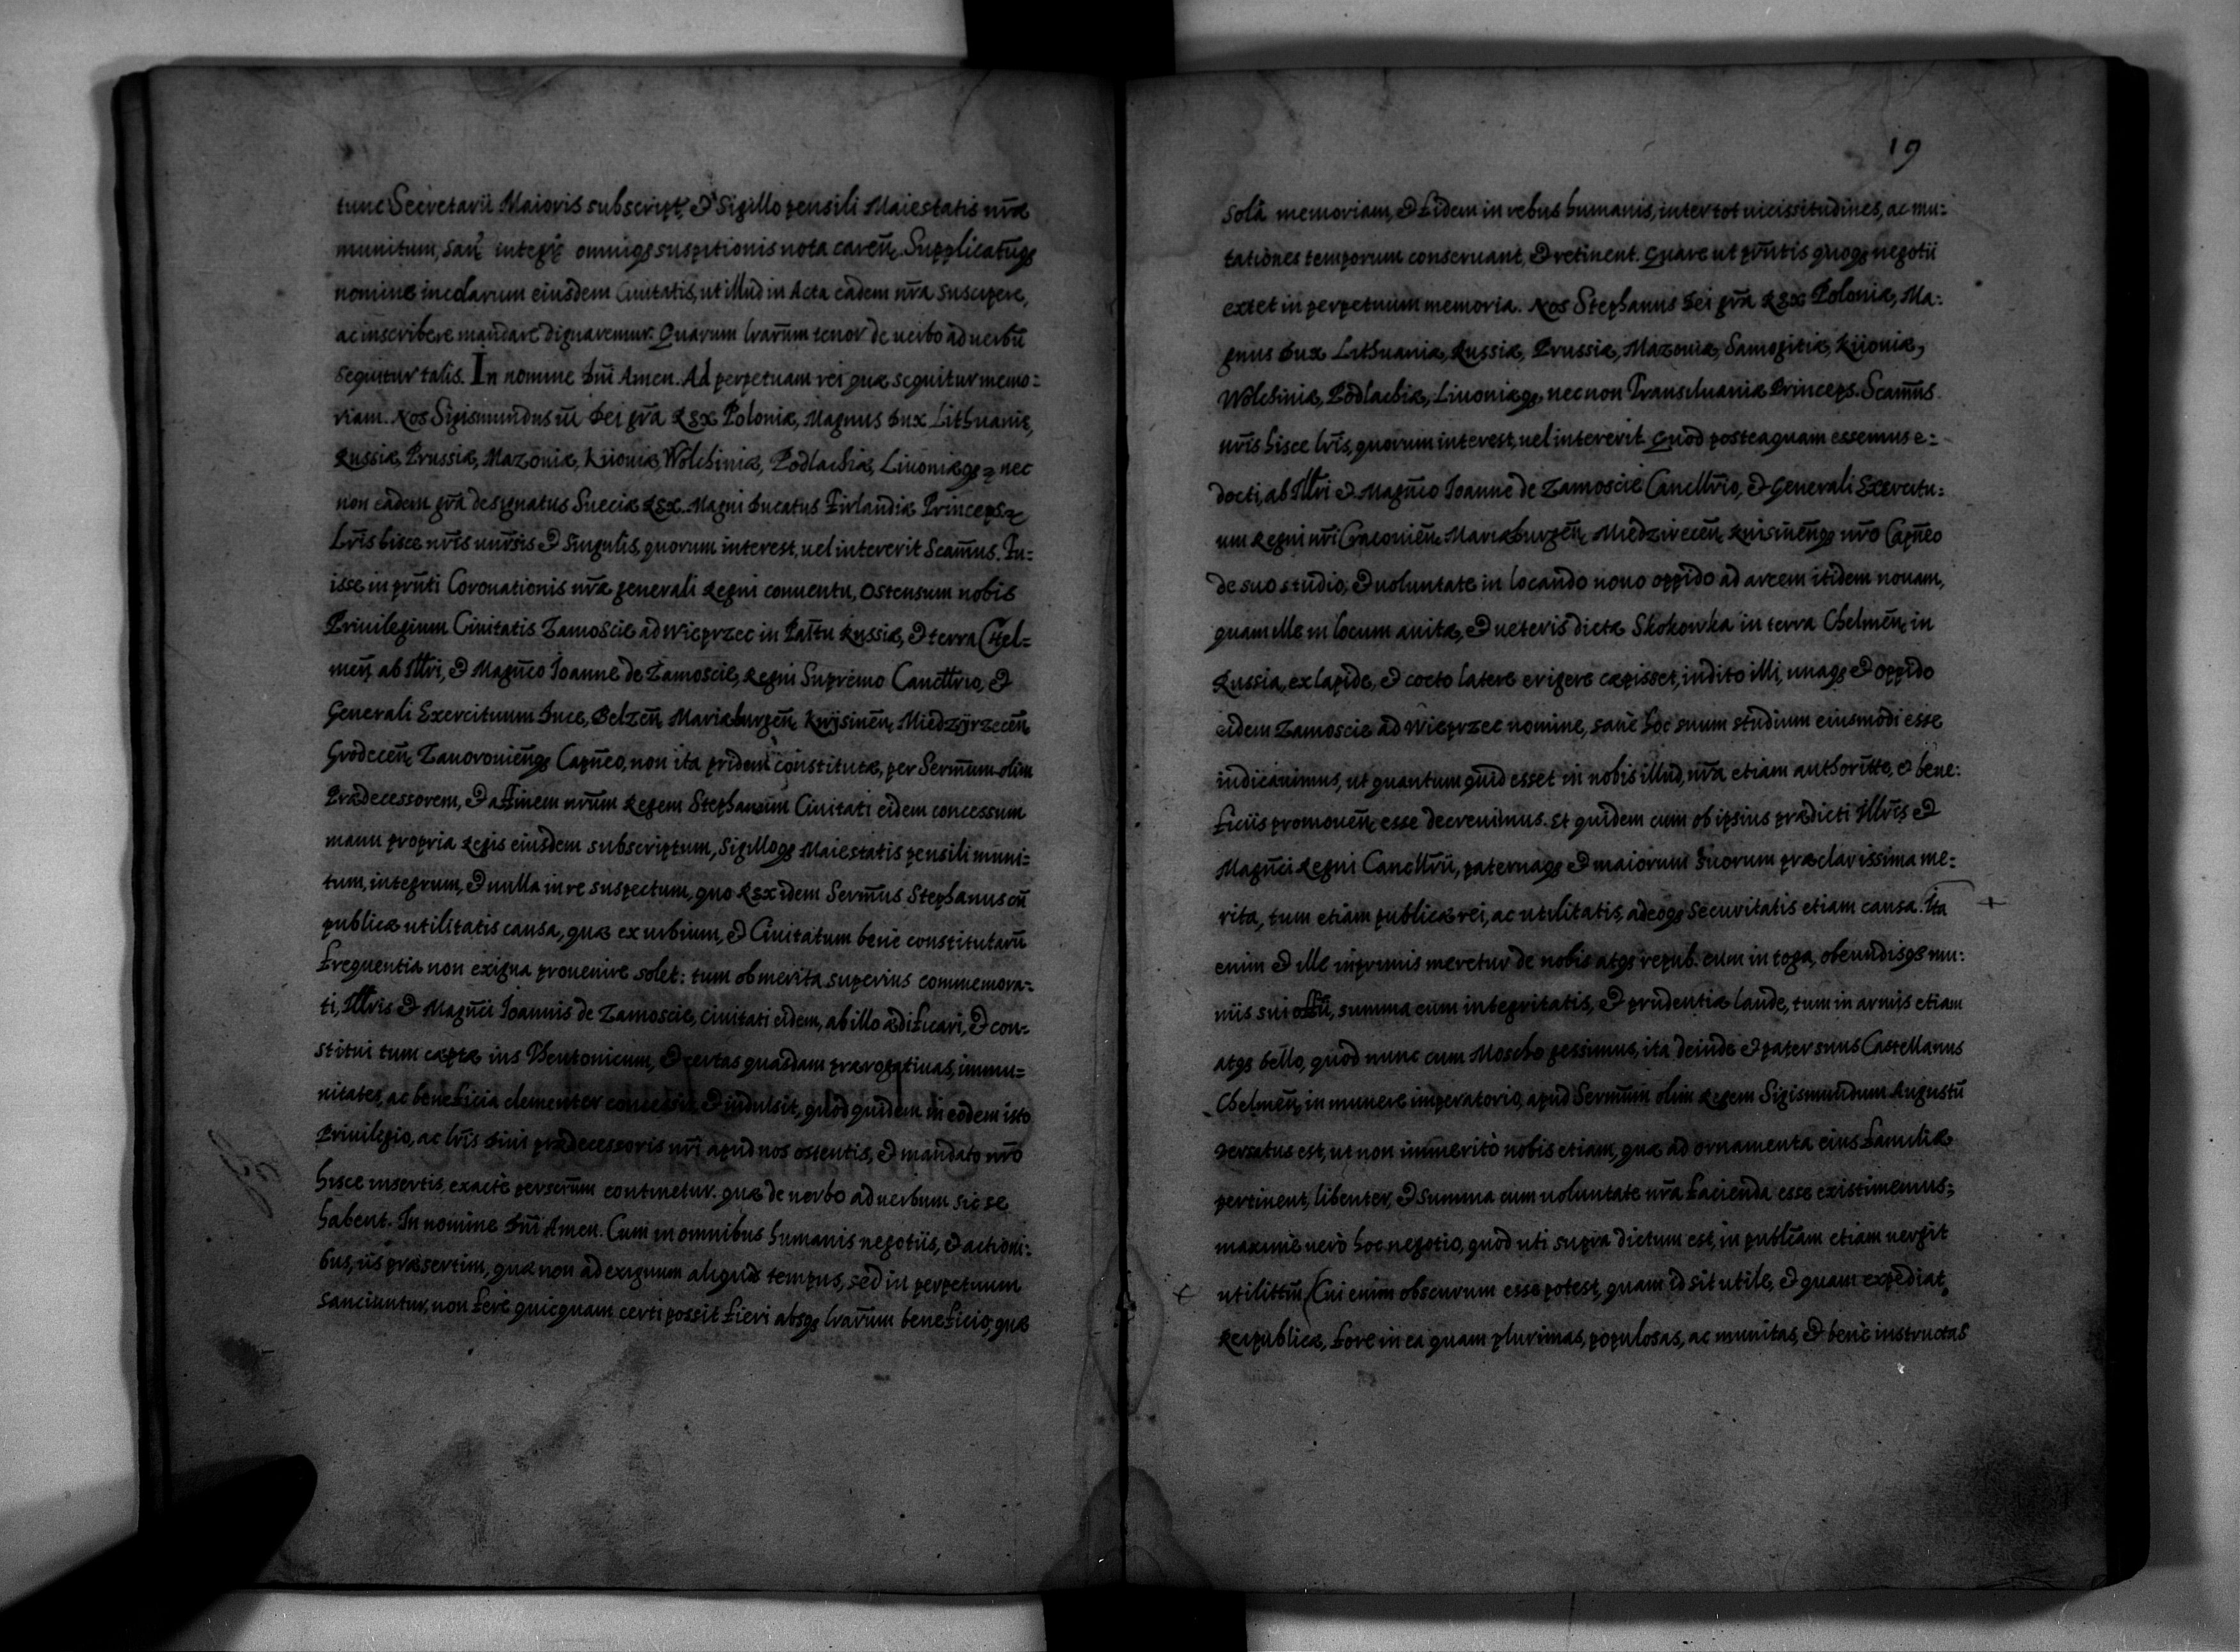 tunc Secretarii Maioris subscript, et Sigillo pensili Maiestatis nr̄æ
munitum, san̄ integr̄ omniq; suspitionis nota caren̄. Supplicatūq;
nomine incolarum eiusdem Ciuitatis, ut illud in Acta eadem nr̄a suscipere,
ac inscribere mandare dignaremur. Quarum lrārum tenor de uerbo ad uerbū
sequitur talis. In nomine Dn̄i Amen. Ad perpetuam rei quæ sequitur memo=
riam. Nos Sigismundus III Dei gr̄a Rex Poloniæ, Magnus Dux Lithuaniæ,
Russiæ, Prussiæ, Mazoniæ, Kiioniæ, Wolchiniæ, Podlachiæ, Liuoniæq; nec
non eadem gr̄a designatus Sueciæ Rex Magni Ducatus Finlandiæ Princeps
Lrīs hisce nr̄is uniūrsis et singulis, quorum interest, uel intererit Scam̄us. Fu=
isse in prn̄ti Coronationis nr̄æ generali Regni conuentu, ostensum nobis
Priuilegium Ciuitatis Zamoscie ad Wieprzec in Paltu Russiæ, et terra Chel=
men̄, ab Illri, et Magn̄co Joanne de Zamoscie, Regni Supremo Cancllrio, et
Generali Exercituum Duce, Belzen̄, Mariæburgen̄, Knÿsinen̄, Miedzÿrzecen̄,
Grodecen̄, Zauoronien̄q; Capn̄eo, non ita pridem constitutæ, per Serm̄um olim
Prædecessorem, et affinem nr̄um Regem Stephanum Ciuitati eidem concessum
manu propria Regis eiusdem subscriptum, Sigilloq; Maiestatis pensili muni=
tum, integrum, et nulla in re suspectum, quo Rex idem Serm̄us Stephanus cū
publicæ utilitatis causa, quæ ex urbium, et Ciuitatum bene constitutarū
frequentia non exigua prouenire solet: tum ob merita superius commemora=
ti, Illris et Magn̄ci Joannis de Zamoscie, ciuitati eidem, ab illo ædificari, et con=
stitui tum cæptæ ius Theutonicum, et certas quasdam prærogatiuas, immu=
nitates, ac beneficia clementer concessit, et indulsit, quod quidem in eodem isto
Priuilegio, ac lrīs Diui prædecessoris nr̄i apud nos ostentis, et mandato nr̄o
hisce insertis, exacte perscrūm continetur. quæ de uerbo ad uerbum sic se
habent. In nomine Dn̄i Amen. Cum in omnibus humanis negotiis, et actioni=
bus, iis præsertim, quæ non ad exiguum aliquod tempus, sed in perpetuum
sanciuntur, non fere quicquam certi possit fieri absq; lrārum beneficio, quæ
19
sola memoriam, et fidem in rebus humanis, inter tot uicissitudines, ac mu=
tationes temporum conseruant, et retinent. Quare ut prn̄tis quoq; negotii
extet in perpetuum memoria. Nos Stephanus Dei gr̄a Rex Poloniæ, Ma=
gnus Dux Lithuaniæ, Russiæ, Prussiæ, Mazoniæ, Samogitiæ, Kiioniæ,
Wolchiniæ, Podlachiæ, Liuoniæq; nec non Transiluaniæ Princeps. Scam̄us
nr̄is hisce lrīs, quorum interest, uel intererit. Quod posteaquam essemus e=
docti, ab Illri et Magn̄co Joanne de Zamoscie Cancllrio, et Generali Exercitu=
um Regni nr̄i Cracouien̄, Mariæburgen̄, Miedzirecen̄, Knisinen̄q; nr̄o Capn̄eo
de suo studio, et uoluntate in locando nouo oppido ad arcem itidem nouam,
quam ille in locum auitæ, et ueteris dictæ Skokowka in terra Chelmen̄, in
Russia, ex lapide, et cocto latere erigere cæpisset, indito illi, unaq; et oppido
eidem Zamoscie ad Wieprzec nomine, sane hoc suum studium eiusmodi esse
iudicauimus, ut quantum quid esset in nobis illud, nr̄a etiam authoritte, et bene=
ficiis promouen̄, esse decreuimus. Et quidem cum ob ipsius prædicti Illris et
Magn̄ci Regni Cancllrii, paternaq; et maiorum suorum præclarissima me=
rita, tum etiam publicæ rei, ac utilitatis, adeoq; securitatis etiam causa. Ita +
enim et ille inprimis meretur de nobis atq; repub. cum in toga, obeundisq; mu=
niis sui offī, summa cum integritatis, et prudentiæ laude, tum in armis etiam
atq; bello, quod nunc cum Moscho gessimus, ita deinde et pater suus Castellanus
Chelmen̄, in munere imperatorio, apud Serm̄um olim Regem Sigismundum Augustū
uersatus est, ut non immerito nobis etiam, quæ ad ornamenta eius familiæ
pertinent, libenter, et summa cum uoluntate nr̄a facienda esse existimemus;
maxime uero hoc negotio, quod uti supra dictum est, in publicam etiam uergit
utilittm̄. Cui enim obscurum esse potest, quam id sit utile, et quam expediat
Reipublicæ, fore in ea quam plurimas, populosas, ac munitas, et bene instructas